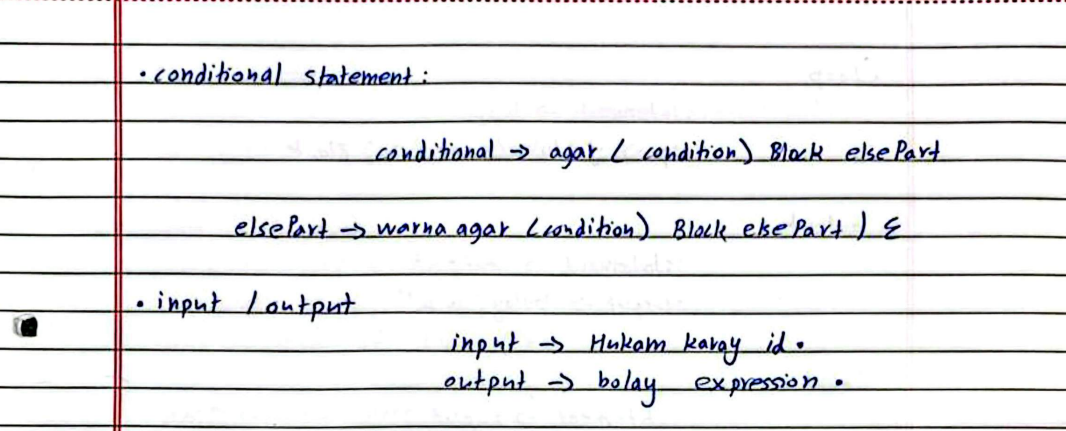 • conditional statement :
conditional → agar ( condition) Block elsePart
elsePart → warna agar (condition) Block elsePart | ε
• input / output
input → Hukam karay id .
output → bolay expression .